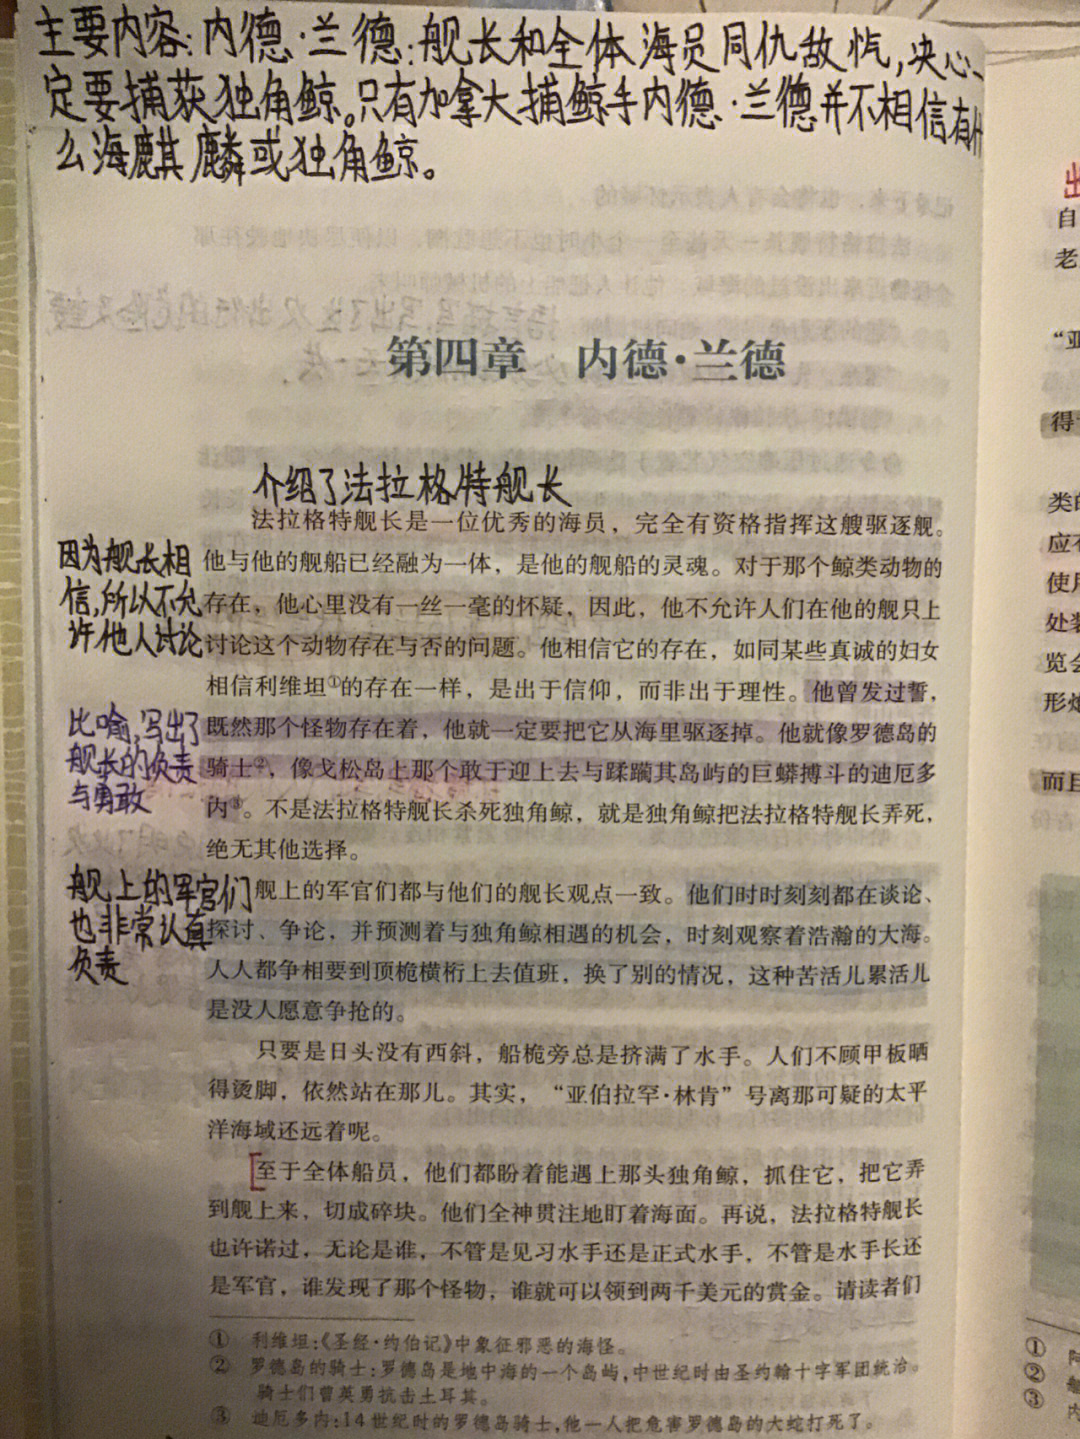 主要内容:内德·兰德:舰长和全体海员同仇敌忾,决心一
定要捕获独角鲸。只有加拿大捕鲸手内德·兰德并不相信有什
么海麒麟或独角鲸。
第四章 内德·兰德
介绍了法拉格特舰长
法拉格特舰长是一位优秀的海员，完全有资格指挥这艘驱逐舰。
他与他的舰船已经融为一体，是他的舰船的灵魂。对于那个鲸类动物的
存在，他心里没有一丝一毫的怀疑，因此，他不允许人们在他的舰只上
讨论这个动物存在与否的问题。他相信它的存在，如同某些真诚的妇女
相信利维坦①的存在一样，是出于信仰，而非出于理性。他曾发过誓，
既然那个怪物存在着，他就一定要把它从海里驱逐掉。他就像罗德岛的
骑士②，像戈松岛上那个敢于迎上去与蹂躏其岛屿的巨蟒搏斗的迪厄多
内③。不是法拉格特舰长杀死独角鲸，就是独角鲸把法拉格特舰长弄死，
绝无其他选择。
因为舰长相
信,所以不允
许他人讨论
比喻,写出了
舰长的负责
与勇敢
舰上的军官们都与他们的舰长观点一致。他们时时刻刻都在谈论、
探讨、争论，并预测着与独角鲸相遇的机会，时刻观察着浩瀚的大海。
人人都争相要到顶桅横桁上去值班，换了别的情况，这种苦活儿累活儿
是没人愿意争抢的。
舰上的军官们
也非常认真
负责
只要是日头没有西斜，船桅旁总是挤满了水手。人们不顾甲板晒
得烫脚，依然站在那儿。其实，“亚伯拉罕·林肯”号离那可疑的太平
洋海域还远着呢。
至于全体船员，他们都盼着能遇上那头独角鲸，抓住它，把它弄
到舰上来，切成碎块。他们全神贯注地盯着海面。再说，法拉格特舰长
也许诺过，无论是谁，不管是见习水手还是正式水手，不管是水手长还
是军官，谁发现了那个怪物，谁就可以领到两千美元的赏金。请读者们
① 利维坦:《圣经·约伯记》中象征邪恶的海怪。
② 罗德岛的骑士:罗德岛是地中海的一个岛屿,中世纪时由圣约翰十字军团统治。
骑士们曾英勇抗击土耳其。
③ 迪厄多内:14世纪时的罗德岛骑士,他一人把危害罗德岛的大蛇打死了。
出
自
老
“亚
得
类的
应有
使用
处装
览会
形炮
而且
①
②
③